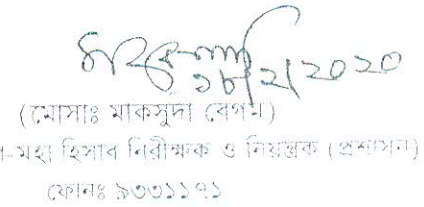 ১৮/২/২০২০
(মোসাঃ মাকসুদা বেগম)
-মহা হিসাব নিরীক্ষক ও নিয়ন্ত্রক (প্রশাসন)
ফোনঃ ৯৩৩১১৭১